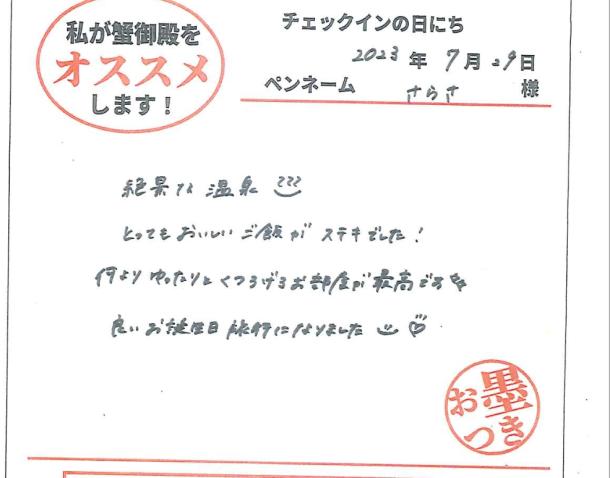 私が蟹御殿を
オススメ
します！
チェックインの日にち
2023年7月29日
ペンネーム さらさ 様
絶景な温泉
とってもおいしいご飯がステキでした！
何よりゆったりとくつろげるお部屋が最高です
良いお誕生日旅行になりました
お墨
つき